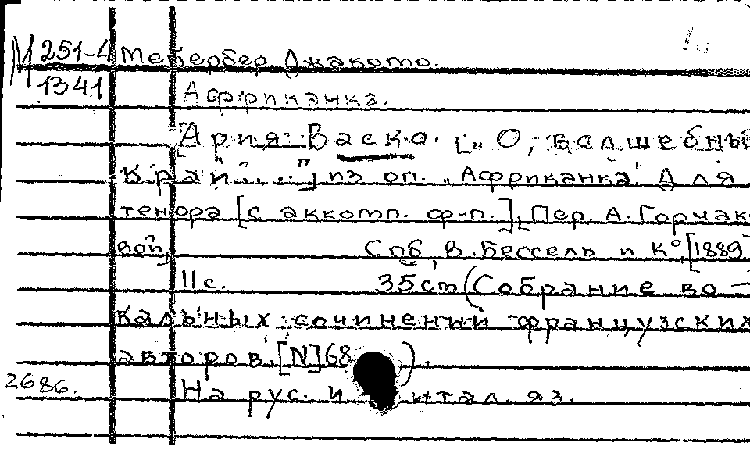 М 251-4 Мейербер Джакомо.
1341 Африканка.
[Ария Васко. [„О, волшебный
край..."] из оп. „Африканка". Для
тенора [с аккомп. ф-п.]. Пер. А. Горчак-
вой. Спб, В. Бессель и К°, [1889]
11 с. 35 cm (Собрание во-
кальных сочинений французских
авторов. [N] 68 ).
2686. На рус. и итал. яз.